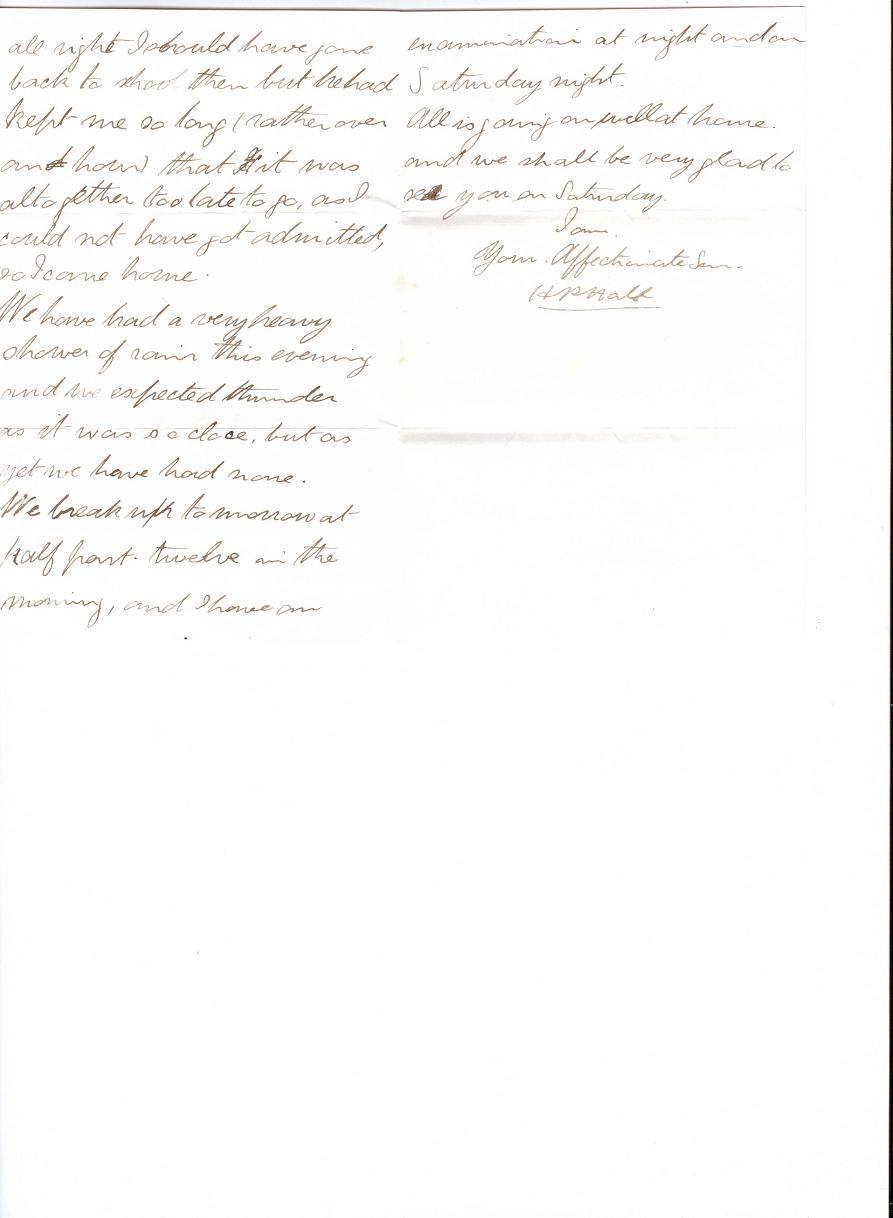 all right I should have gone
back to shool then but he had
kept me so long (rather over
an hour) that it was
altogether too late to go, as I
could not have got admitted,
so I came home.
We have had a very heavy
shower of rain this evening
and we expected thunder
as it was so close, but as
yet we have had none.
We break up tomorrow at
half past twelve in the
morning, and I have an
examination at night and on
Saturday night.
All is going on well at home.
and we shall be very glad to
see you on Saturday.
I am.
Your Affectionate Son.